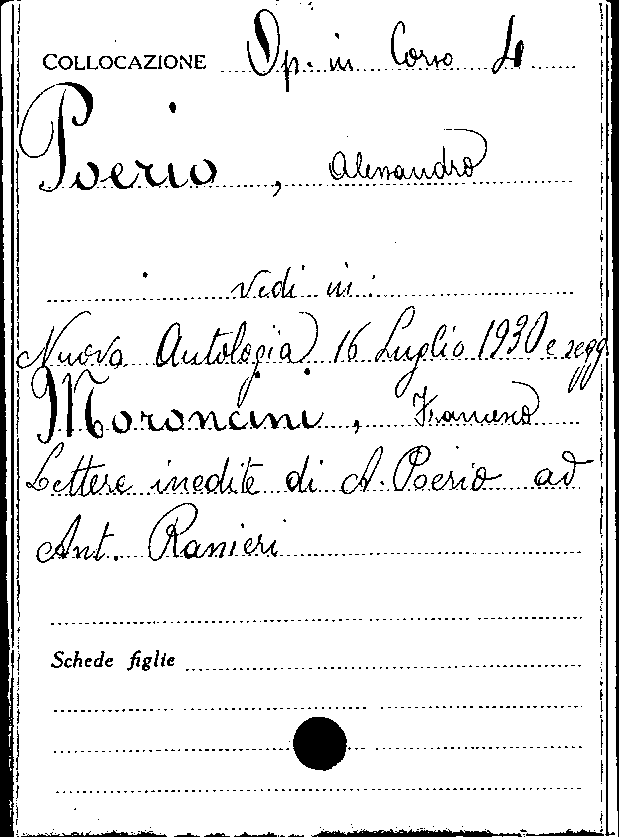 COLLOCAZIONE Op. in Corso 4
Poerio, Alessandro
vedi in:
Nuova Antologia 16 Luglio 1930 e segg.
Moroncini, Francesco
Lettere inedite di A. Poerio ad
Ant. Ranieri
Schede figlie